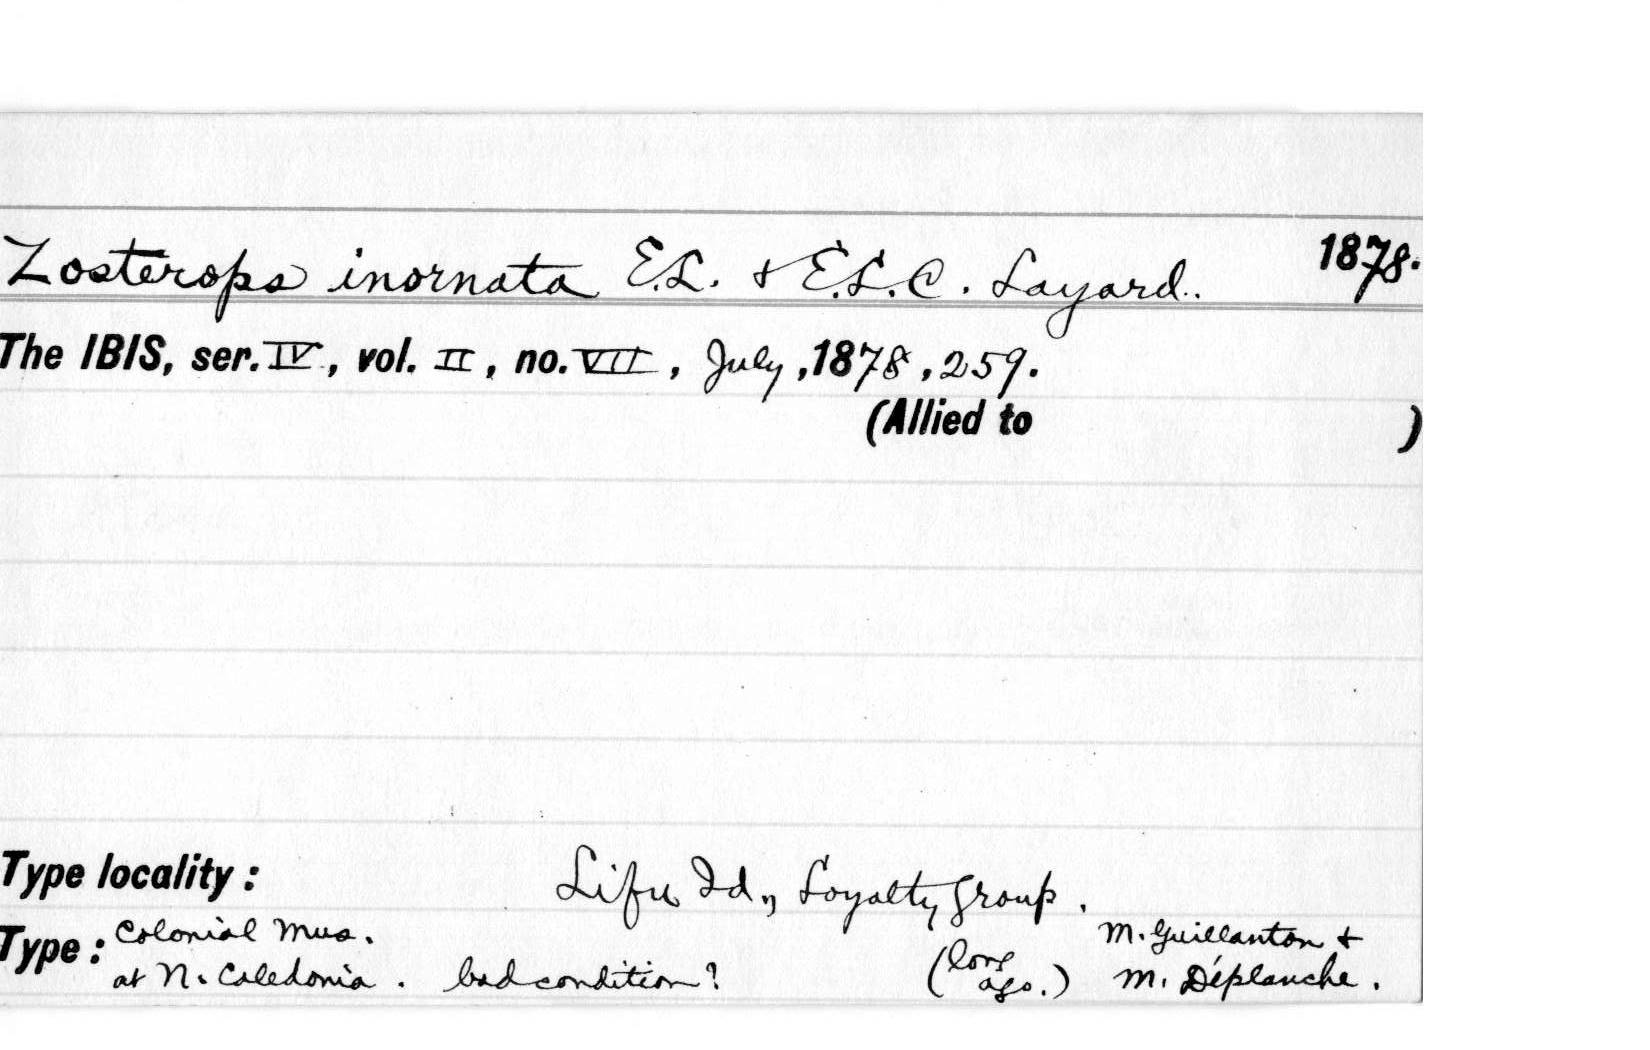 Zosterops inornata E.L. & E.L.C. Layard. 1878.
The IBIS, ser. IV, vol. II, no. VII, July, 1878, 259.
(Allied to )
Type locality: Lifu Id., Loyalty Group.
Type: Colonial Mus. M. Guillanton &
at N. Caledonia. bad condition? (long ago.) M. Déplanche.